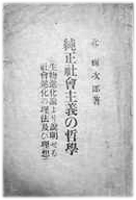 北輝次郎著
純正社會主義の哲學
生物進化論より説明せる
社會進化の理法及び理想